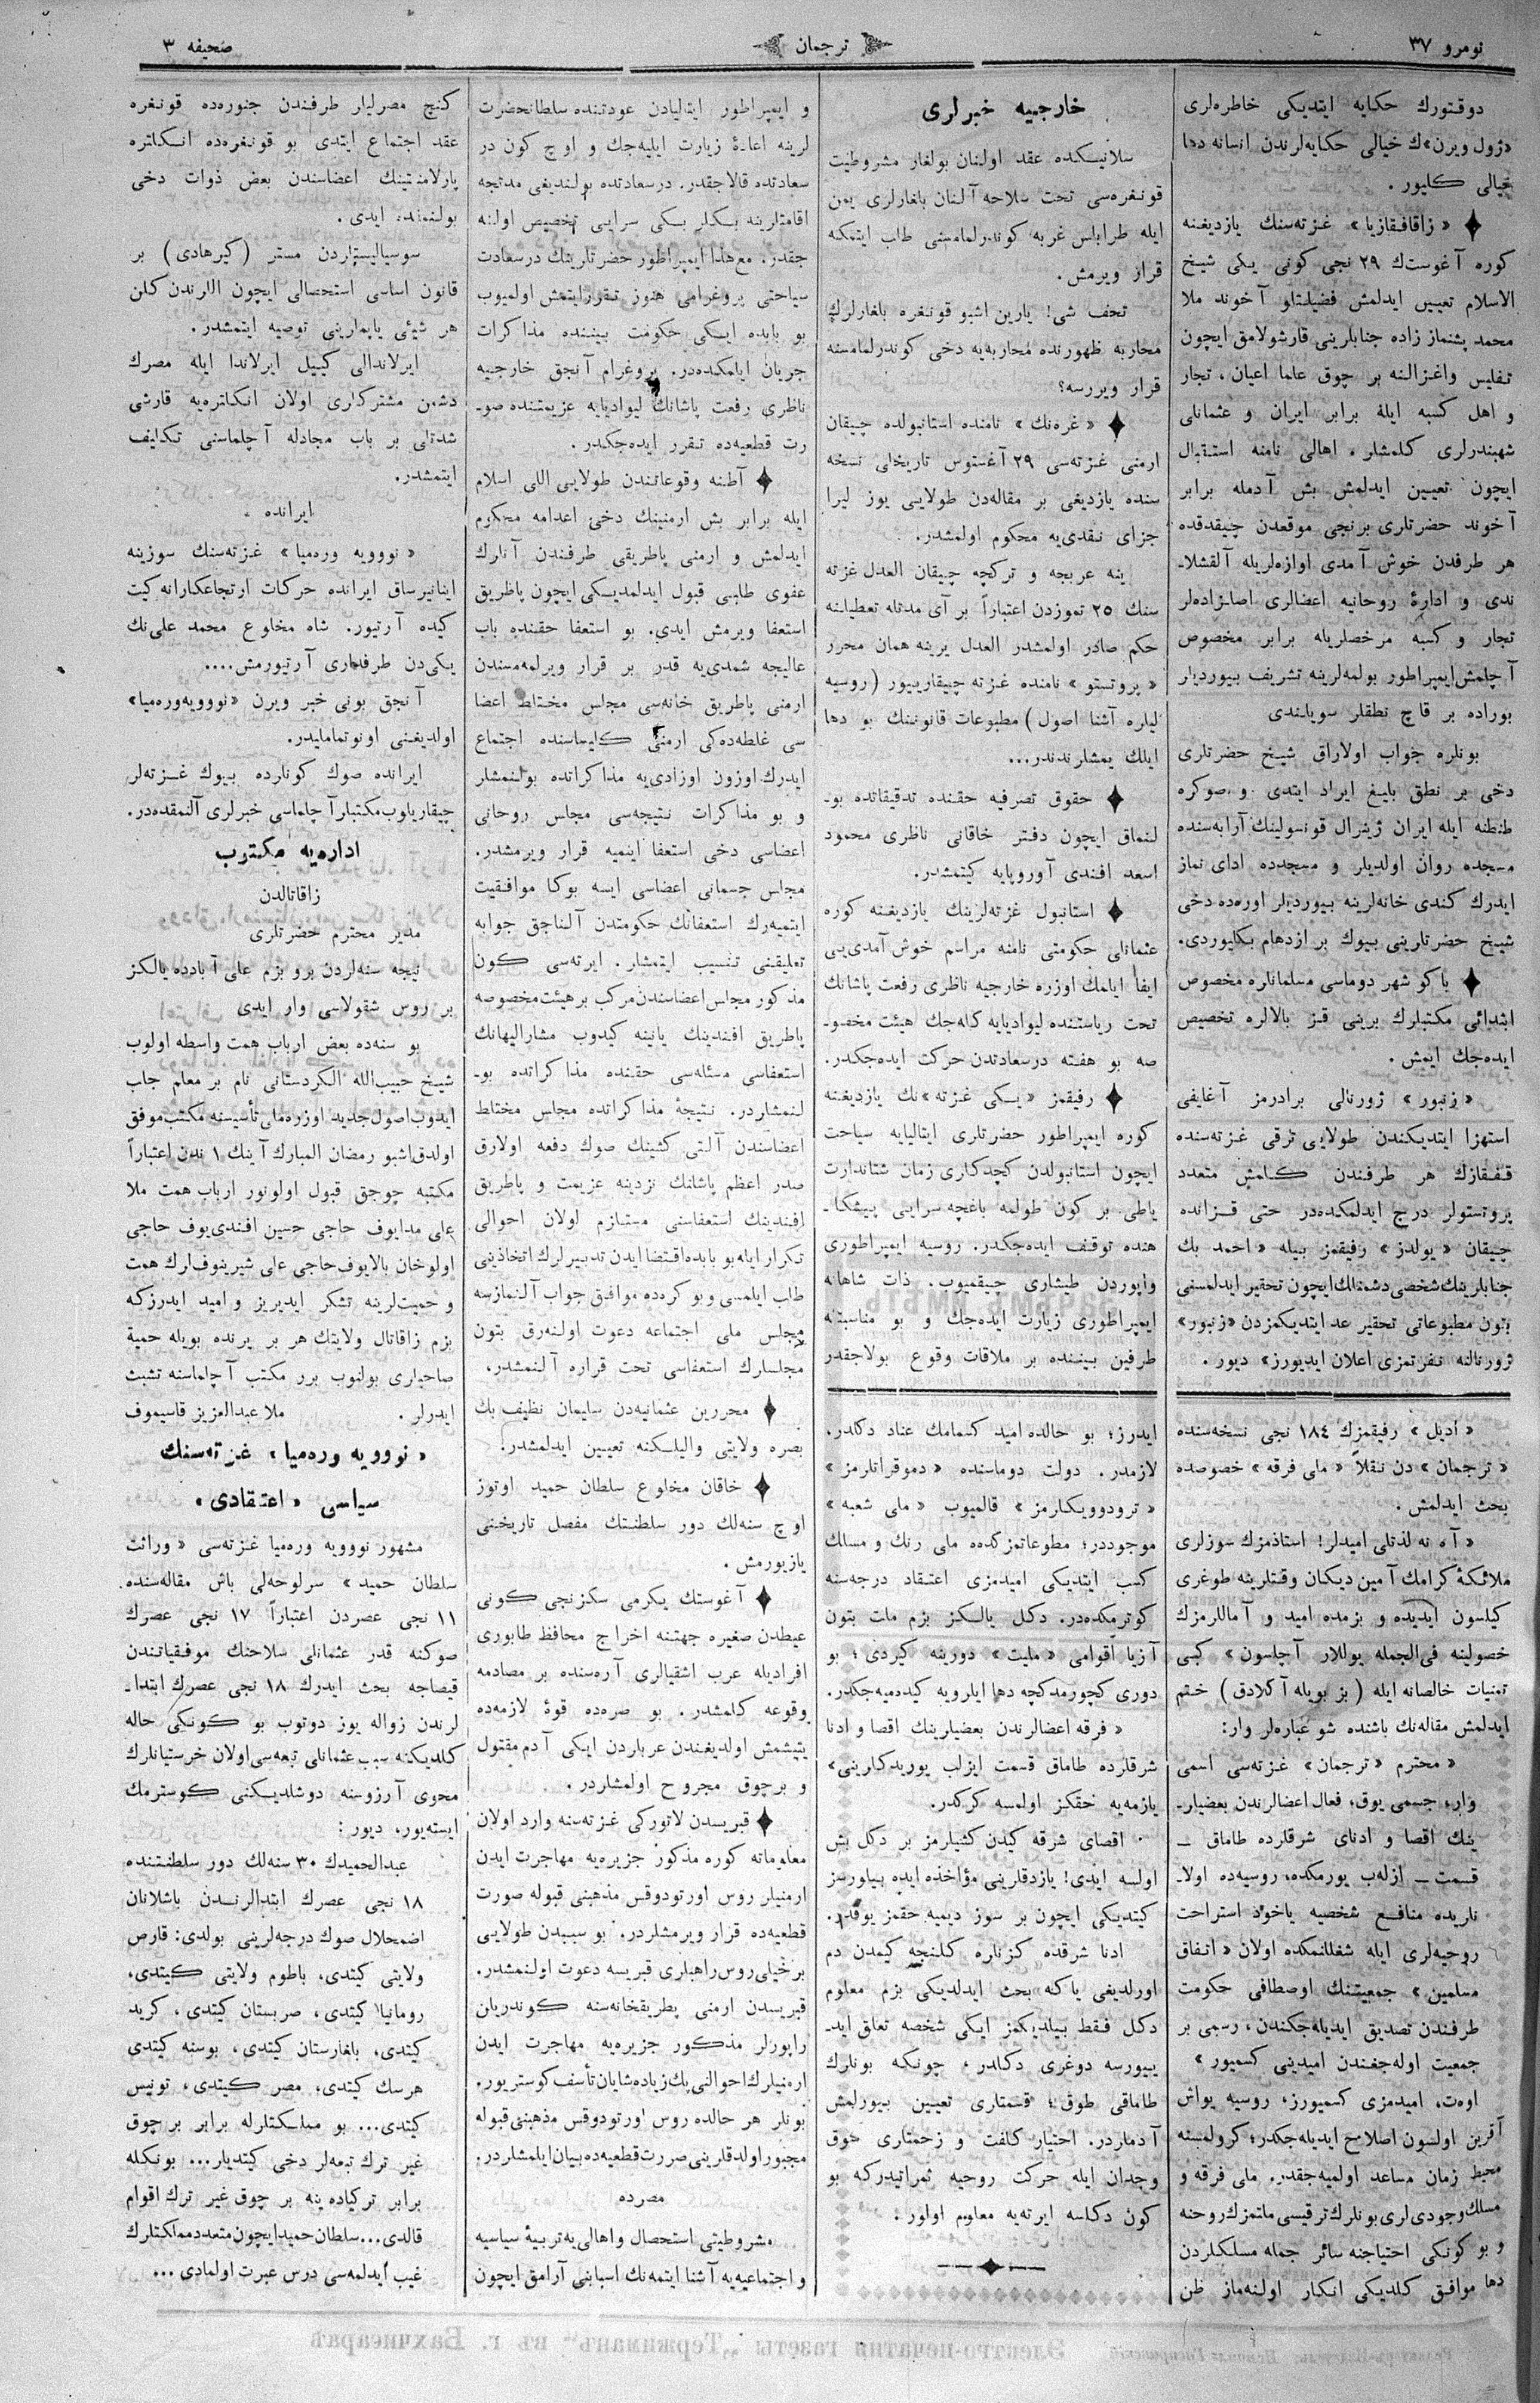 نومرو ٣٧
ترجمان
صحیفه ٣
دوقتورك حكایه ایتدیكی خاطره‌لری
«ژول ویرن»ك خیالی حكایه‌لرندن انسانه دها
خیالی كلیور .
« زاقافقازیا » غزته‌سنك یازدیغنه
كوره آغوستك ٢٩ نجی كونی یكی شیخ
الاسلام تعیین ایدلمش فضیلتلو آخوند ملا
محمد پشنماز زاده جنابلرینی قارشولامق ایچون
تفلیس واغزالنه بر چوق علما اعیان ، تجار
و اهل كسبه ایله برابر ایران و عثمانلی
شهبندرلری كلمشلر. اهالی نامنه استقبال
ایچون تعیین ایدلمش بش آدمله برابر
آخوند حضرتلری برنجی موقعدن چیقدقده
هر طرفدن خوش آمدی اوازه‌لریله آلقشلا-
ندی و ادارهٔ روحانیه اعضالری اصلزاده‌لر
تجار و كسبه مرخصلریله برابر مخصوص
آچلمش ایمپراطور بولمه‌لرینه تشریف بیوردیلر
بوراده بر قاچ نطقلر سویلندی
بونلره جواب اولاراق شیخ حضرتلری
دخی بر نطق بلیغ ایراد ایتدی و صوكره
طنطنه ایله ایران ژینرال قونسولینك آرابه‌سنده
مسجده روان اولدیلر و مسجدده ادای نماز
ایدرك كندی خانه‌لرینه بیوردیلر اوره‌ده دخی
شیخ حضرتلرینی بیوك بر ازدهام بكلیوردی.
باكو شهر دوماسی مسلمانلره مخصوص
ابتدائی مكتبلرك برینی قز بالالره تخصیص
ایده‌جك ایمش .
« زنبور » ژورنالی برادرمز آغایفی
استهزا ایتدیكندن طولایی ترقی غزته‌سنده
قفقازك هر طرفندن كلمش متعدد
پروتستولر درج ایدلمكده‌در حتی قزانده
چیقان « یولدز » رفیقمز بیله « احمد بك
جنابلرینك شخصی دشمنلك ایچون تحقیر ایدلمسنی
بتون مطبوعاتی تحقیر عد ایتدیكمزدن «زنبور»
ژورنالنه نفرتمزی اعلان ایدیورز» دیور .
« ادیل » رفیقمزك ١٨٤ نجی نسخه‌سنده
« ترجمان » دن نقلاً « ملی فرقه » خصوصده
بحث ایدلمش .
« آه نه لذتلی امیدلر! استاذمزك سوزلری
ملائكهٔ كرامك آمین دیكان وقتلرینه طوغری
كیلسون ایدیده و بزمده امید و آماللرمزك
خصولینه فی الجمله یوللار آچلسون » كبی
تمنیات خالصانه ایله ( بز بویله آكلادق ) ختم
ایدلمش مقاله‌نك باشنده شو عباره‌لر وار:
« محترم « ترجمان » غزته‌سی اسمی
وار، جسمی یوق، فعال اعضالرندن بعضیلر-
ینك اقصا و ادنای شرقلرده طاماق —
قسمت — ازله‌ب یورمكده، روسیه‌ده اولا-
نلریده منافع شخصیه یاخود استراحت
روحیه‌لری ایله شغللنمكده اولان « اتفاق
مسلمین » جمعیتنك اوصطافی حكومت
طرفندن تصدیق ایدیله‌جكندن، رسمی بر
جمعیت اوله‌جغندن امیدینی كسمیور »
اوه‌ت، امیدمزی كسمیورز، روسیه یواش
آقرین اولسون اصلاح ایدیله‌جكدر؛ كرولمسنه
محیط زمان مساعد اولمیه‌جقدر. ملی فرقه و
مسلك وجودی لری بونلرك ترقیسی ملتمزك روحنه
و بو كونكی احتیاجنه سائر جمله مسلكلردن
دها موافق كلدیكی انكار اولنه‌ماز ظن
خارجیه خبرلری
سلانیكده عقد اولنان بولغار مشروطیت
قونغره‌سی تحت سلاحه آلنان بلغارلری یمن
ایله طرابلس غربه كوندرلمامسنی طلب ایتمكه
قرار ویرمش.
تحف شی! یارین اشبو قونغره بلغارلرك
محاربه ظهورنده محاربه‌یه دخی كوندرلمامسنه
قرار ویررسه؟
« غره‌نك » نامنده استانبولده چیقان
ارمنی غزته‌سی ٢٩ آغستوس تاریخلی نسخه
سنده یازدیغی بر مقاله‌دن طولایی یوز لیرا
جزای نقدی‌یه محكوم اولمشدر.
ینه عربجه و تركچه چیقان العدل غزته
سنك ٢٥ تموزدن اعتباراً بر آی مدتله تعطیلنه
حكم صادر اولمشدر العدل یرینه همان محرر
« پروتستو » نامنده غزته چیقارییور ( روسیه
لیلره آشنا اصول ) مطبوعات قانوننك بو دها
ایلك یمشلرندندر...
حقوق تصرفیه حقنده تدقیقاتده بو-
لنماق ایچون دفتر خاقانی ناظری محمود
اسعد افندی آوروپایه كیتمشدر.
استانبول غزته‌لرینك یازدیغنه كوره
عثمانلی حكومتی نامنه مراسم خوش آمدی‌یی
ایفا ایلمك اوزره خارجیه ناظری رفعت پاشانك
تحت ریاستنده لیوادیایه كله‌جك هیئت مخصو-
صه بو هفته درسعادتدن حركت ایده‌جكدر.
رفیقمز «یكی غزته»نك یازدیغنه
كوره ایمپراطور حضرتلری ایتالیایه سیاحت
ایچون استانبولدن كچدكلری زمان شتاندارت
یاطی بر كون طولمه باغچه سرایی پیشكا-
هنده توقف ایده‌جكدر. روسیه ایمپراطوری
واپوردن طیشاری چیقمیوب، ذات شاهانه
ایمپراطوری زیارت ایده‌جك و بو مناسبتله
طرفین بیننده بر ملاقات وقوع بولاجقدر
ایدرز؛ بو حالده امید كسمامك عناد دكلدر،
لازمدر. دولت دوماسنده « دموقراتلرمز »
« ترودوویكلرمز » قالمیوب « ملی شعبه »
موجوددر؛ مطوعاتمزكده‌ ملی رنك و مسلك
كسب ایتدیكی امیدمزی اعتقاد درجه‌سنه
كوترمكده‌در. دكل یالكز بزم ملت بتون
آزیا اقوامی « ملیت » دورینه كیردی؛ بو
دوری كچورمدكچه دها ایلرویه كیده‌میه‌جكدر.
« فرقه اعضالرندن بعضیلرینك اقصا و ادنا
شرقلرده طاماق قسمت ایزلب یوریدكلرینی»
یازمه‌یه حقكز اولمسه كركدر.
اقصای شرقه كیدن كشیلرمز بر دكل بش
اولسه ایدی! یازدقلرینی مؤاخذه ایده بیلورسز
كیتدیكی ایچون بر سوز دیمیه حقمز یوقدر.
ادنا شرقده كزنلره كلنجه كیمدن دم
اورلدیغی یاكه بحث ایدلدیكی بزم معلوم
دكل فقط بیلدیكمز ایكی شخصه تعلق اید-
ییورسه دوغری دكلدر، چونكه بونلرك
طاماقی طوق؛ قسمتلری تعیین بیورلمش
آدملردر. اختیار كلفت و زحمتلری حوق
وجدان ایله حركت روحیه ثمراتیدركه بو
كون دكلسه ایرته‌یه معلوم اولور.
و ایمپراطور ایتالیادن عودتنده سلطانحضرت
لرینه اعادهٔ زیارت ایلیه‌جك و اوچ كون در
سعادتده قالاجقدر. درسعادتده بولندیغی مدتجه
اقامتلرینه بكلر بكی سرایی تخصیص اولنه
جقدر. مع‌هذا ایمپراطور حضرتلرینك درسعادت
سیاحتی پروغرامی هنوز تقررایتمش اولمیوب
بو بابده ایكی حكومت بیننده مذاكرات
جریان ایلمكده‌در. پروغرام آنجق خارجیه
ناظری رفعت پاشانك لیوادیایه عزیمتنده صو-
رت قطعیه‌ده تقرر ایده‌جكدر.
آطنه وقوعاتندن طولایی اللی اسلام
ایله برابر بش ارمنینك دخی اعدامه محكوم
ایدلمش و ارمنی پاطریقی طرفندن آنلرك
عفوی طلبی قبول ایدلمدیكی ایچون پاطریق
استعفا ویرمش ایدی. بو استعفا حقنده باب
عالیجه شمدی‌یه قدر بر قرار ویرلمه‌مسندن
ارمنی پاطریق خانه‌سی مجلس مختلط اعضا
سی غلطه‌ده‌كی ارمنی كلیساسنده اجتماع
ایدرك اوزون اوزادی‌یه مذاكراتده بولنمشلر
و بو مذاكرات نتیجه‌سی مجلس روحانی
اعضاسی دخی استعفا ایتمیه قرار ویرمشدر.
مجلس جسمانی اعضاسی ایسه بوكا موافقیت
ایتمیه‌رك استعفانك حكومتدن آلناجق جوابه
تعلیقنی تنسیب ایتمشلر. ایرته‌سی كون
مذكور مجلس اعضاسندن مركب بر هیئت مخصوصه
پاطریق افندینك یانینه كیدوب مشارالیهانك
استعفاسی مسئله‌سی حقنده مذاكراتده بو-
لنمشلردر. نتیجهٔ مذاكراتده مجلس مختلط
اعضاسندن آلتی كشینك صوك دفعه اولارق
صدر اعظم پاشانك نزدینه عزیمت و پاطریق
افندینك استعفاسنی مستلزم اولان احوالی
تكرار ایله بو بابده اقتضا ایدن تدبیرلرك اتخاذینی
طلب ایلمسی و بو كره‌ده موافق جواب آلنمازسه
مجلس ملی اجتماعه دعوت اولنه‌رق بتون
مجلسلرك استعفاسی تحت قراره آلنمشدر.
محررین عثمانیه‌دن سلیمان نظیف بك
بصره ولایتی والیلكنه تعیین ایدلمشدر.
خاقان مخلوع سلطان حمید اوتوز
اوچ سنه‌لك دور سلطنتك مفصل تاریخینی
یازیورمش.
آغوستك یكرمی سكزنجی كونی
عیطدن صغیره جهتنه اخراج محافظ طابوری
افرادیله عرب اشقیالری آره‌سنده بر مصادمه
وقوعه كلمشدر. بو صره‌ده قوهٔ لازمه‌ده
یتیشمش اولدیغندن عربلردن ایكی آدم مقتول
و برچوق مجروح اولمشلردر.
قبریسدن لاتوركی غزته‌سنه وارد اولان
معلوماته كوره مذكور جزیره‌یه مهاجرت ایدن
ارمنیلر روس اورتودوقس مذهبنی قبوله صورت
قطعیه‌ده قرار ویرمشلردر. بو سببدن طولایی
برخیلی روس راهبلری قبریسه دعوت اولنمشدر.
قبریسدن ارمنی پطریقخانه‌سنه كوندریلن
راپورلر مذكور جزیره‌یه مهاجرت ایدن
ارمنیلرك احوالنی پك زیاده شایان تأسف كوستریور.
بونلر هر حالده روس اورتودوقس مذهبنی قبوله
مجبور اولدقلرینی صورت قطعیه‌ده بیان ایلمشلردر.
مصرده
مشروطیتی استحصال و اهالی‌یه تربیهٔ سیاسیه
و اجتماعیه‌یه آشنا ایتمه‌نك اسبابنی آرامق ایچون
كنج مصرلیلر طرفندن جنوره‌ده قونغره
عقد اجتماع ایتدی بو قونغره‌ده انكلتره
پارلامنتینك اعضاسندن بعض ذوات دخی
بولنمقده ایدی.
سوسیالیستلردن مستر ( كیرهادی ) بر
قانون اساسی استحصالی ایچون اللرندن كلن
هر شیئی یاپملرینی توصیه ایتمشدر.
ایرلاندالی كیبل ایرلاندا ایله مصرك
دشمن مشتركلری اولان انكلتره‌یه قارشی
شدتلی بر باب مجادله آچلماسنی تكلیف
ایتمشدر.
ایرانده
« نوویه وره‌میا » غزته‌سنك سوزینه
اینانیرساق ایرانده حركات ارتجاعكارانه كیت
كیده آرتیور. شاه مخلوع محمد علی‌نك
یكی‌دن طرفداری آرتیورمش....
آنجق بونی خبر ویرن «نوویه‌وره‌میا»
اولدیغنی اونوتماملیدر.
ایرانده صوك كونلرده بیوك غزته‌لر
چیقاریلوب مكتبلر آچلماسی خبرلری آلنمقده‌در.
اداره‌یه مكتوب
زاقاتالدن
مدیر محترم حضرتلری
نیجه سنه‌لردن برو بزم علی آبادده یالكز
بر روس شقولاسی وار ایدی
بو سنه‌ده بعض ارباب همت واسطه اولوب
شیخ حبیب‌الله الكردستانی نام بر معلم جلب
ایدوب اصول جدید اوزره ملی تأسیسنه مكتب موفق
اولدق اشبو رمضان المبارك آینك ١ ندن اعتباراً
مكتبه چوجق قبول اولونور ارباب همت ملا
علی مدایوف حاجی حسین افندی‌یوف حاجی
اولوخان بالایوف حاجی علی شیرینوف‌لرك همت
و حمیت‌لرینه تشكر ایدیریز و امید ایدرزكه
بزم زاقاتال ولایتك هر بر یرنده بویله حمیة
صاحبلری بولنوب برر مكتب آچلماسنه تشبث
ایدرلر. ملا عبدالعزیز قاسیموف
« نوویه وره‌میا » غزته‌سنك
سیاسی « اعتقادی »
مشهور نوویه وره‌میا غزته‌سی « وراثت
سلطان حمید » سرلوحه‌لی باش مقاله‌سنده
١١ نجی عصردن اعتباراً ١٧ نجی عصرك
صوكنه قدر عثمانلی سلاحنك موفقیاتندن
قیصاجه بحث ایدرك ١٨ نجی عصرك ابتدا-
لرندن زواله یوز دوتوب بو كونكی حاله
كلدیكنه سبب عثمانلی تبعه‌سی اولان خرستیانلرك
محوی آرزوسنه دوشلدیكنی كوسترمك
ایسته‌یور، دیور:
عبدالحمیدك ٣٠ سنه‌لك دور سلطنتنده
١٨ نجی عصرك ابتدالرندن باشلانان
اضمحلال صوك درجه‌لرینی بولدی: قارص
ولایتی كیتدی، باطوم ولایتی كیتدی،
رومانیا كیتدی، صربستان كیتدی، كرید
كیتدی، بلغارستان كیتدی، بوسنه كیتدی
هرسك كیتدی، مصر كیتدی، تونس
كیتدی... بو مملكتلرله برابر بر چوق
غیر ترك تبعه‌لر دخی كیتدیلر... بونكله
برابر تركیاده ینه بر چوق غیر ترك اقوام
قالدی... سلطان حمید ایچون متعدد مملكتلرك
غیب ایدلمه‌سی درس عبرت اولمادی ...